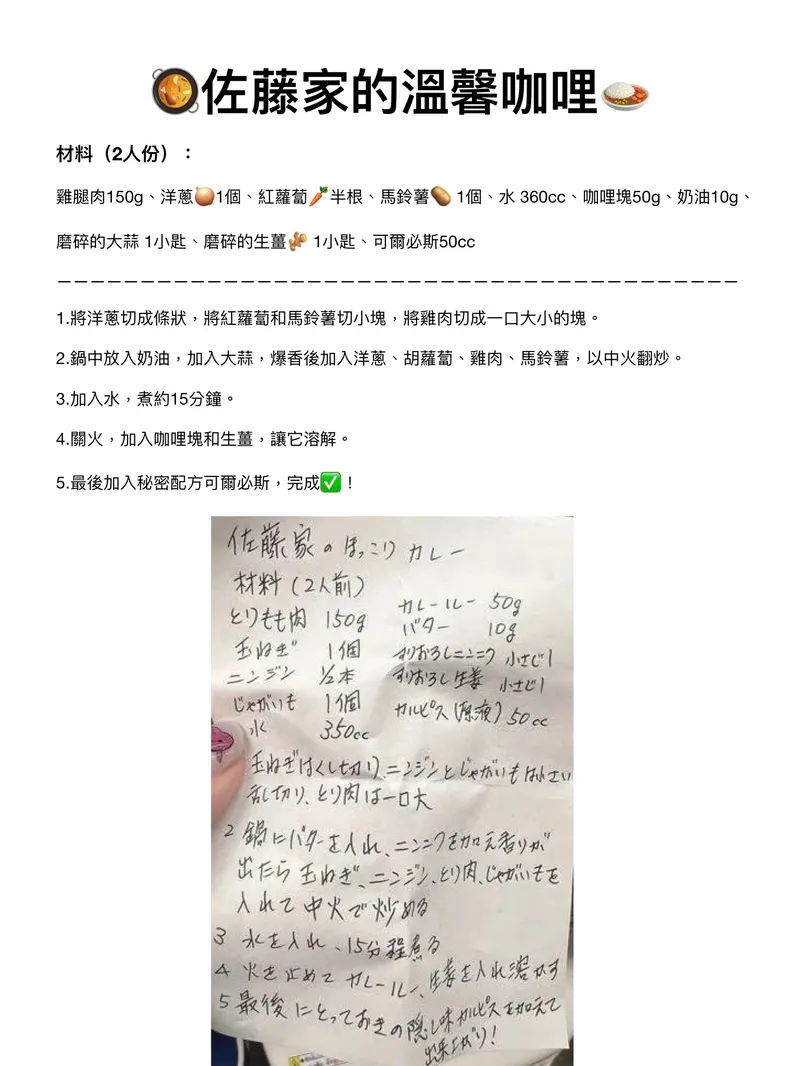 🥘佐藤家的溫馨咖哩🍛
材料（2人份）：
雞腿肉150g、洋蔥🧅1個、紅蘿蔔🥕半根、馬鈴薯🥔 1個、水 360cc、咖哩塊50g、奶油10g、
磨碎的大蒜 1小匙、磨碎的生薑🫚 1小匙、可爾必斯50cc
－－－－－－－－－－－－－－－－－－－－－－－－－－－－－－－－－－－－－－－－－
1.將洋蔥切成條狀，將紅蘿蔔和馬鈴薯切小塊，將雞肉切成一口大小的塊。
2.鍋中放入奶油，加入大蒜，爆香後加入洋蔥、胡蘿蔔、雞肉、馬鈴薯，以中火翻炒。
3.加入水，煮約15分鐘。
4.關火，加入咖哩塊和生薑，讓它溶解。
5.最後加入秘密配方可爾必斯，完成✅！
佐藤家のほっこりカレー
材料（2人前）
とりもも肉 150g
玉ねぎ 1個
ニンジン 1/2本
じゃがいも 1個
水 350cc
カレールー 50g
バター 10g
すりおろしニンニク 小さじ1
すりおろし生姜 小さじ1
カルピス（原液）50cc
玉ねぎはくし切り、ニンジンとじゃがいもは小さい
乱切り、とり肉は一口大
2 鍋にバターを入れ、ニンニクを加え香りが
出たら玉ねぎ、ニンジン、とり肉、じゃがいもを
入れて中火で炒める
3 水を入れ、15分程煮る
4 火を止めてカレールー、生姜を入れ溶かす
5 最後にとっておきの隠し味カルピスを加えて
出来上がり！